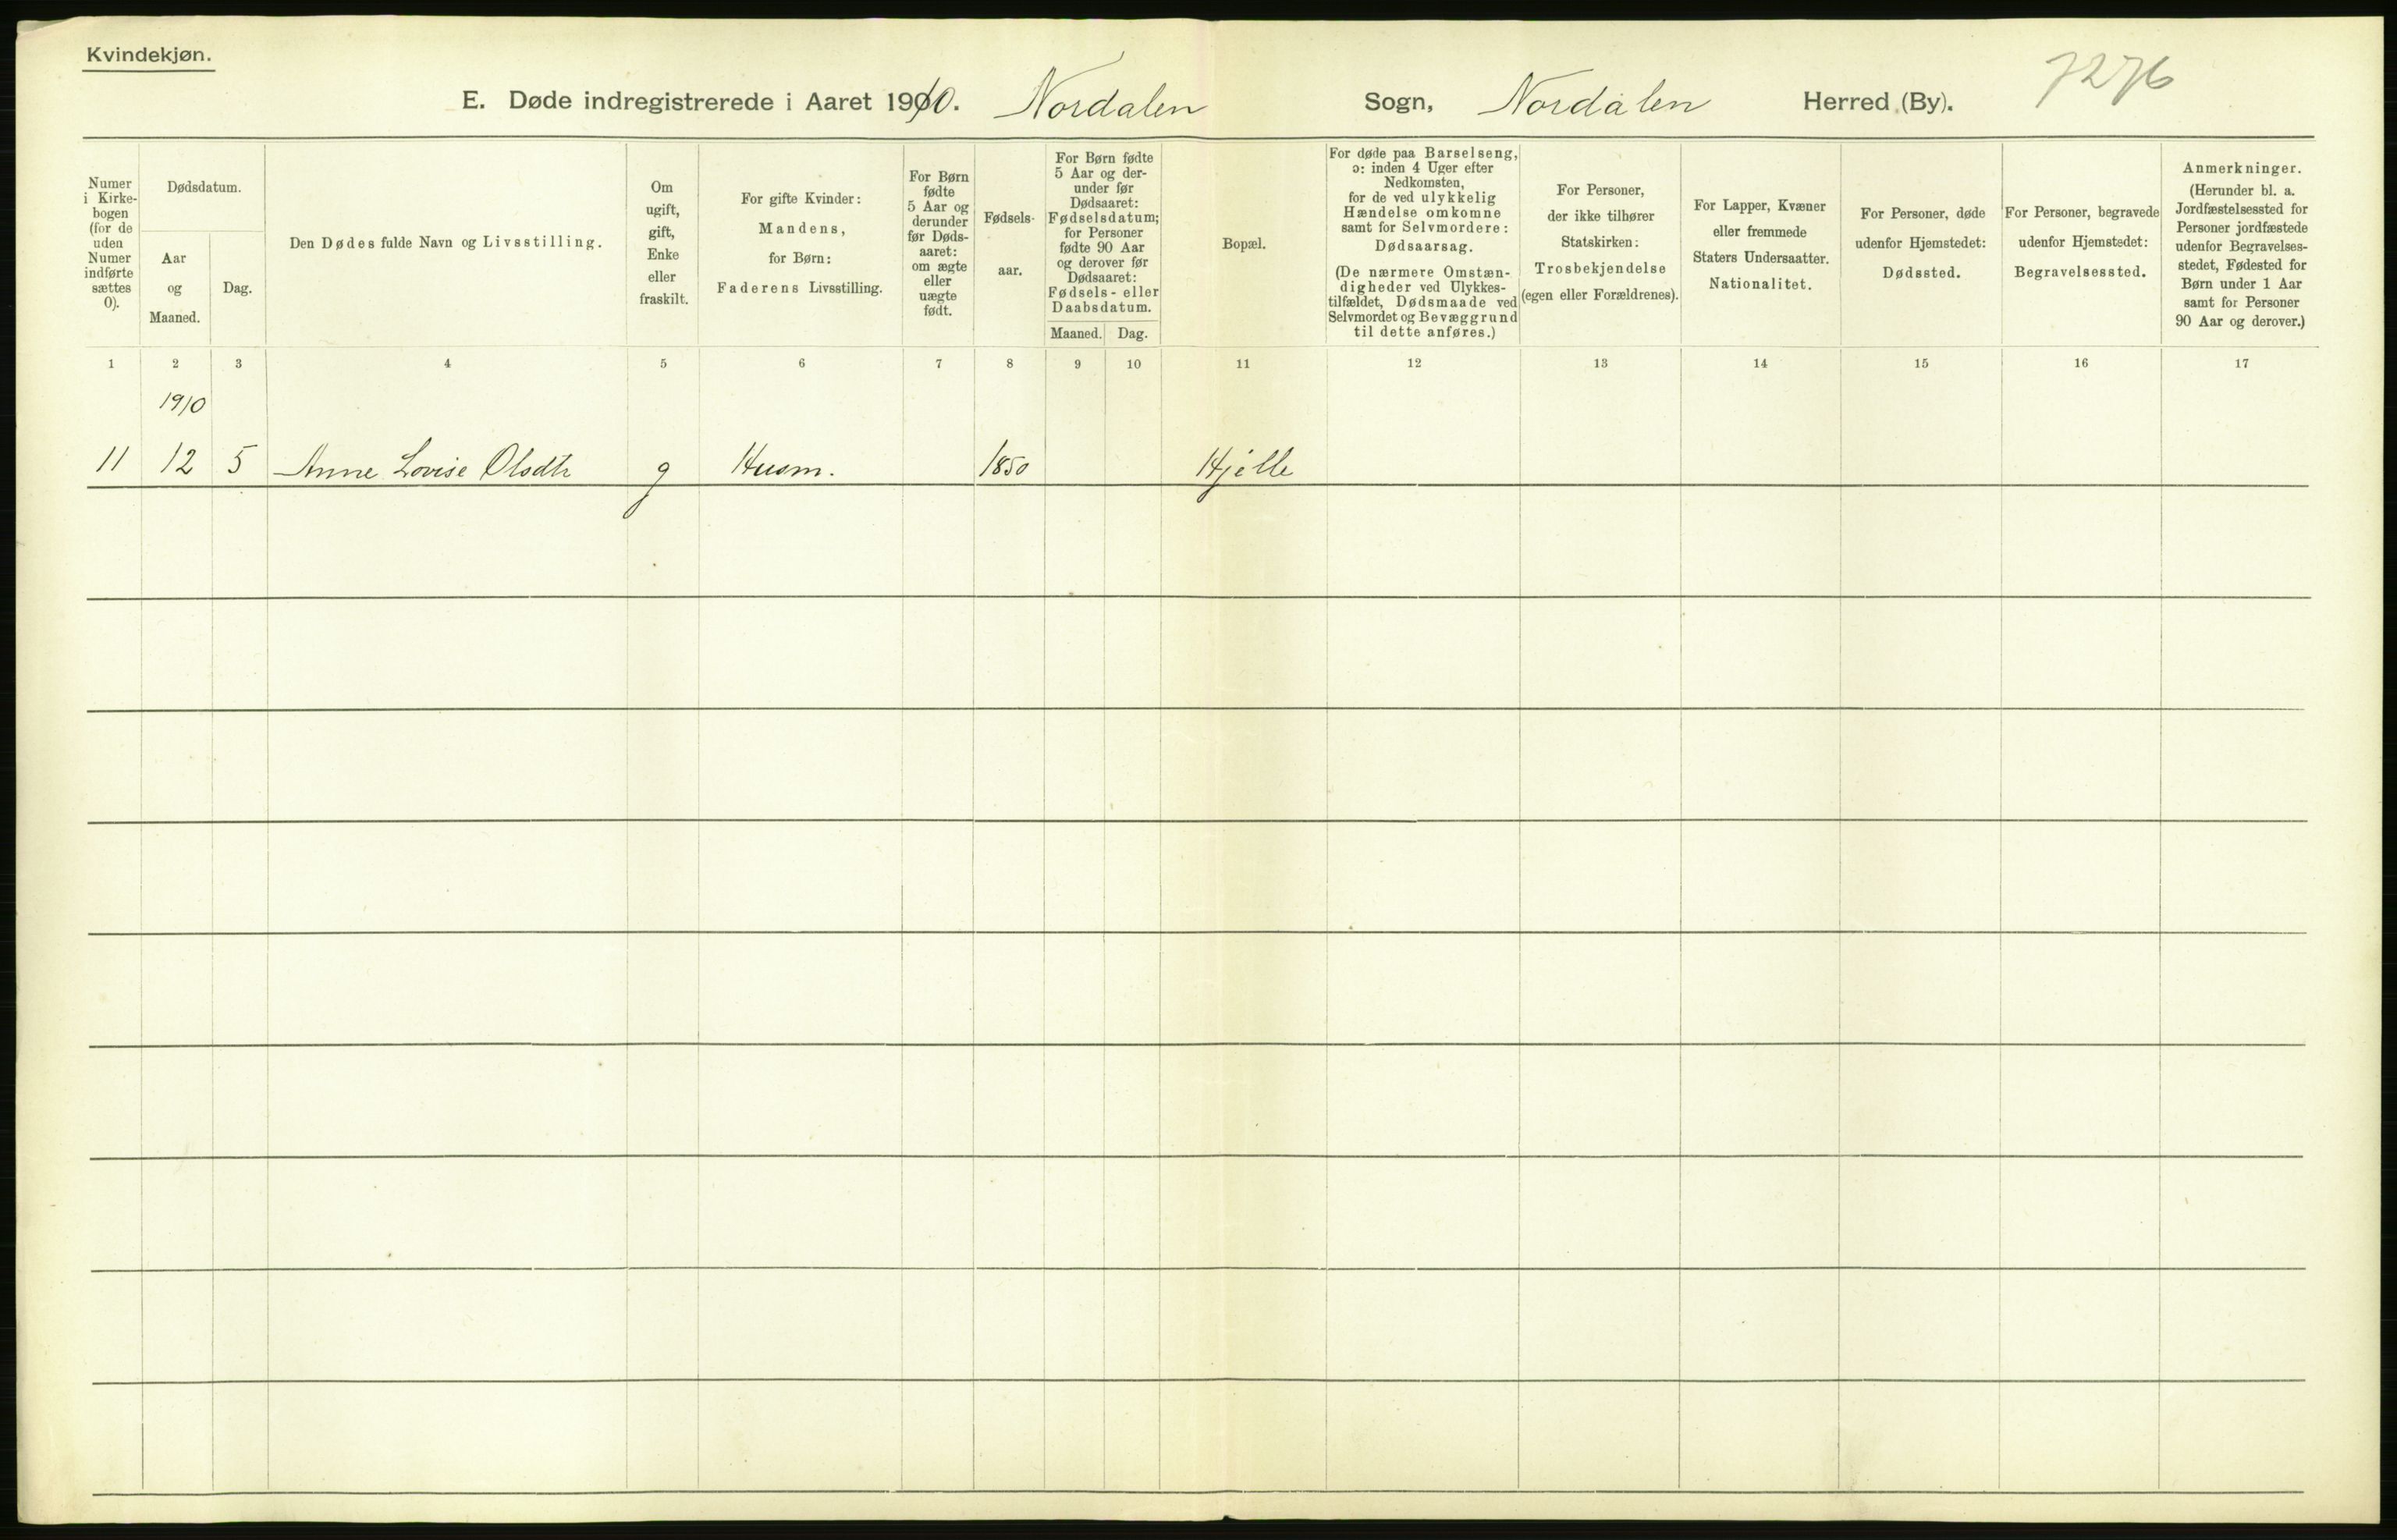 Kvindekjøn.
E. Døde indregistrerede i Aaret 1910. Nordalen Sogn, Nordalen Herred (By). 7276
Numer
i Kirke-
bogen
(for de
uden
Numer
indførte
sættes
0).
Dødsdatum.
Aar
og
Maaned.
Dag.
Den Dødes fulde Navn og Livsstilling.
Om
ugift,
gift,
Enke
eller
fraskilt.
For gifte Kvinder:
Mandens,
for Børn:
Faderens Livsstilling.
For Børn
fødte
5 Aar og
derunder
før Døds-
aaret:
om ægte
eller
uægte
født.
Fødsels-
aar.
For Børn fødte
5 Aar og der-
under før
Dødsaaret:
Fødselsdatum;
for Personer
fødte 90 Aar
og derover før
Dødsaaret:
Fødsels- eller
Daabsdatum.
Maaned. Dag.
Bopæl.
For døde paa Barselseng,
ɔ: inden 4 Uger efter
Nedkomsten,
for de ved ulykkelig
Hændelse omkomne
samt for Selvmordere:
Dødsaarsag.
(De nærmere Omstæn-
digheder ved Ulykkes-
tilfældet, Dødsmaade ved
Selvmordet og Bevæggrund
til dette anføres.)
For Personer,
der ikke tilhører
Statskirken:
Trosbekjendelse
(egen eller Forældrenes).
For Lapper, Kvæner
eller fremmede
Staters Undersaatter.
Nationalitet.
For Personer, døde
udenfor Hjemstedet:
Dødssted.
For Personer, begravede
udenfor Hjemstedet:
Begravelsessted.
Anmerkninger.
(Herunder bl. a.
Jordfæstelsessted for
Personer jordfæstede
udenfor Begravelses-
stedet, Fødested for
Børn under 1 Aar
samt for Personer
90 Aar og derover.)
1 2 3 4 5 6 7 8 9 10 11 12 13 14 15 16 17
1910
11 12 5 Anne Lovise Olsdtr g Husm. 1850 Hjelle